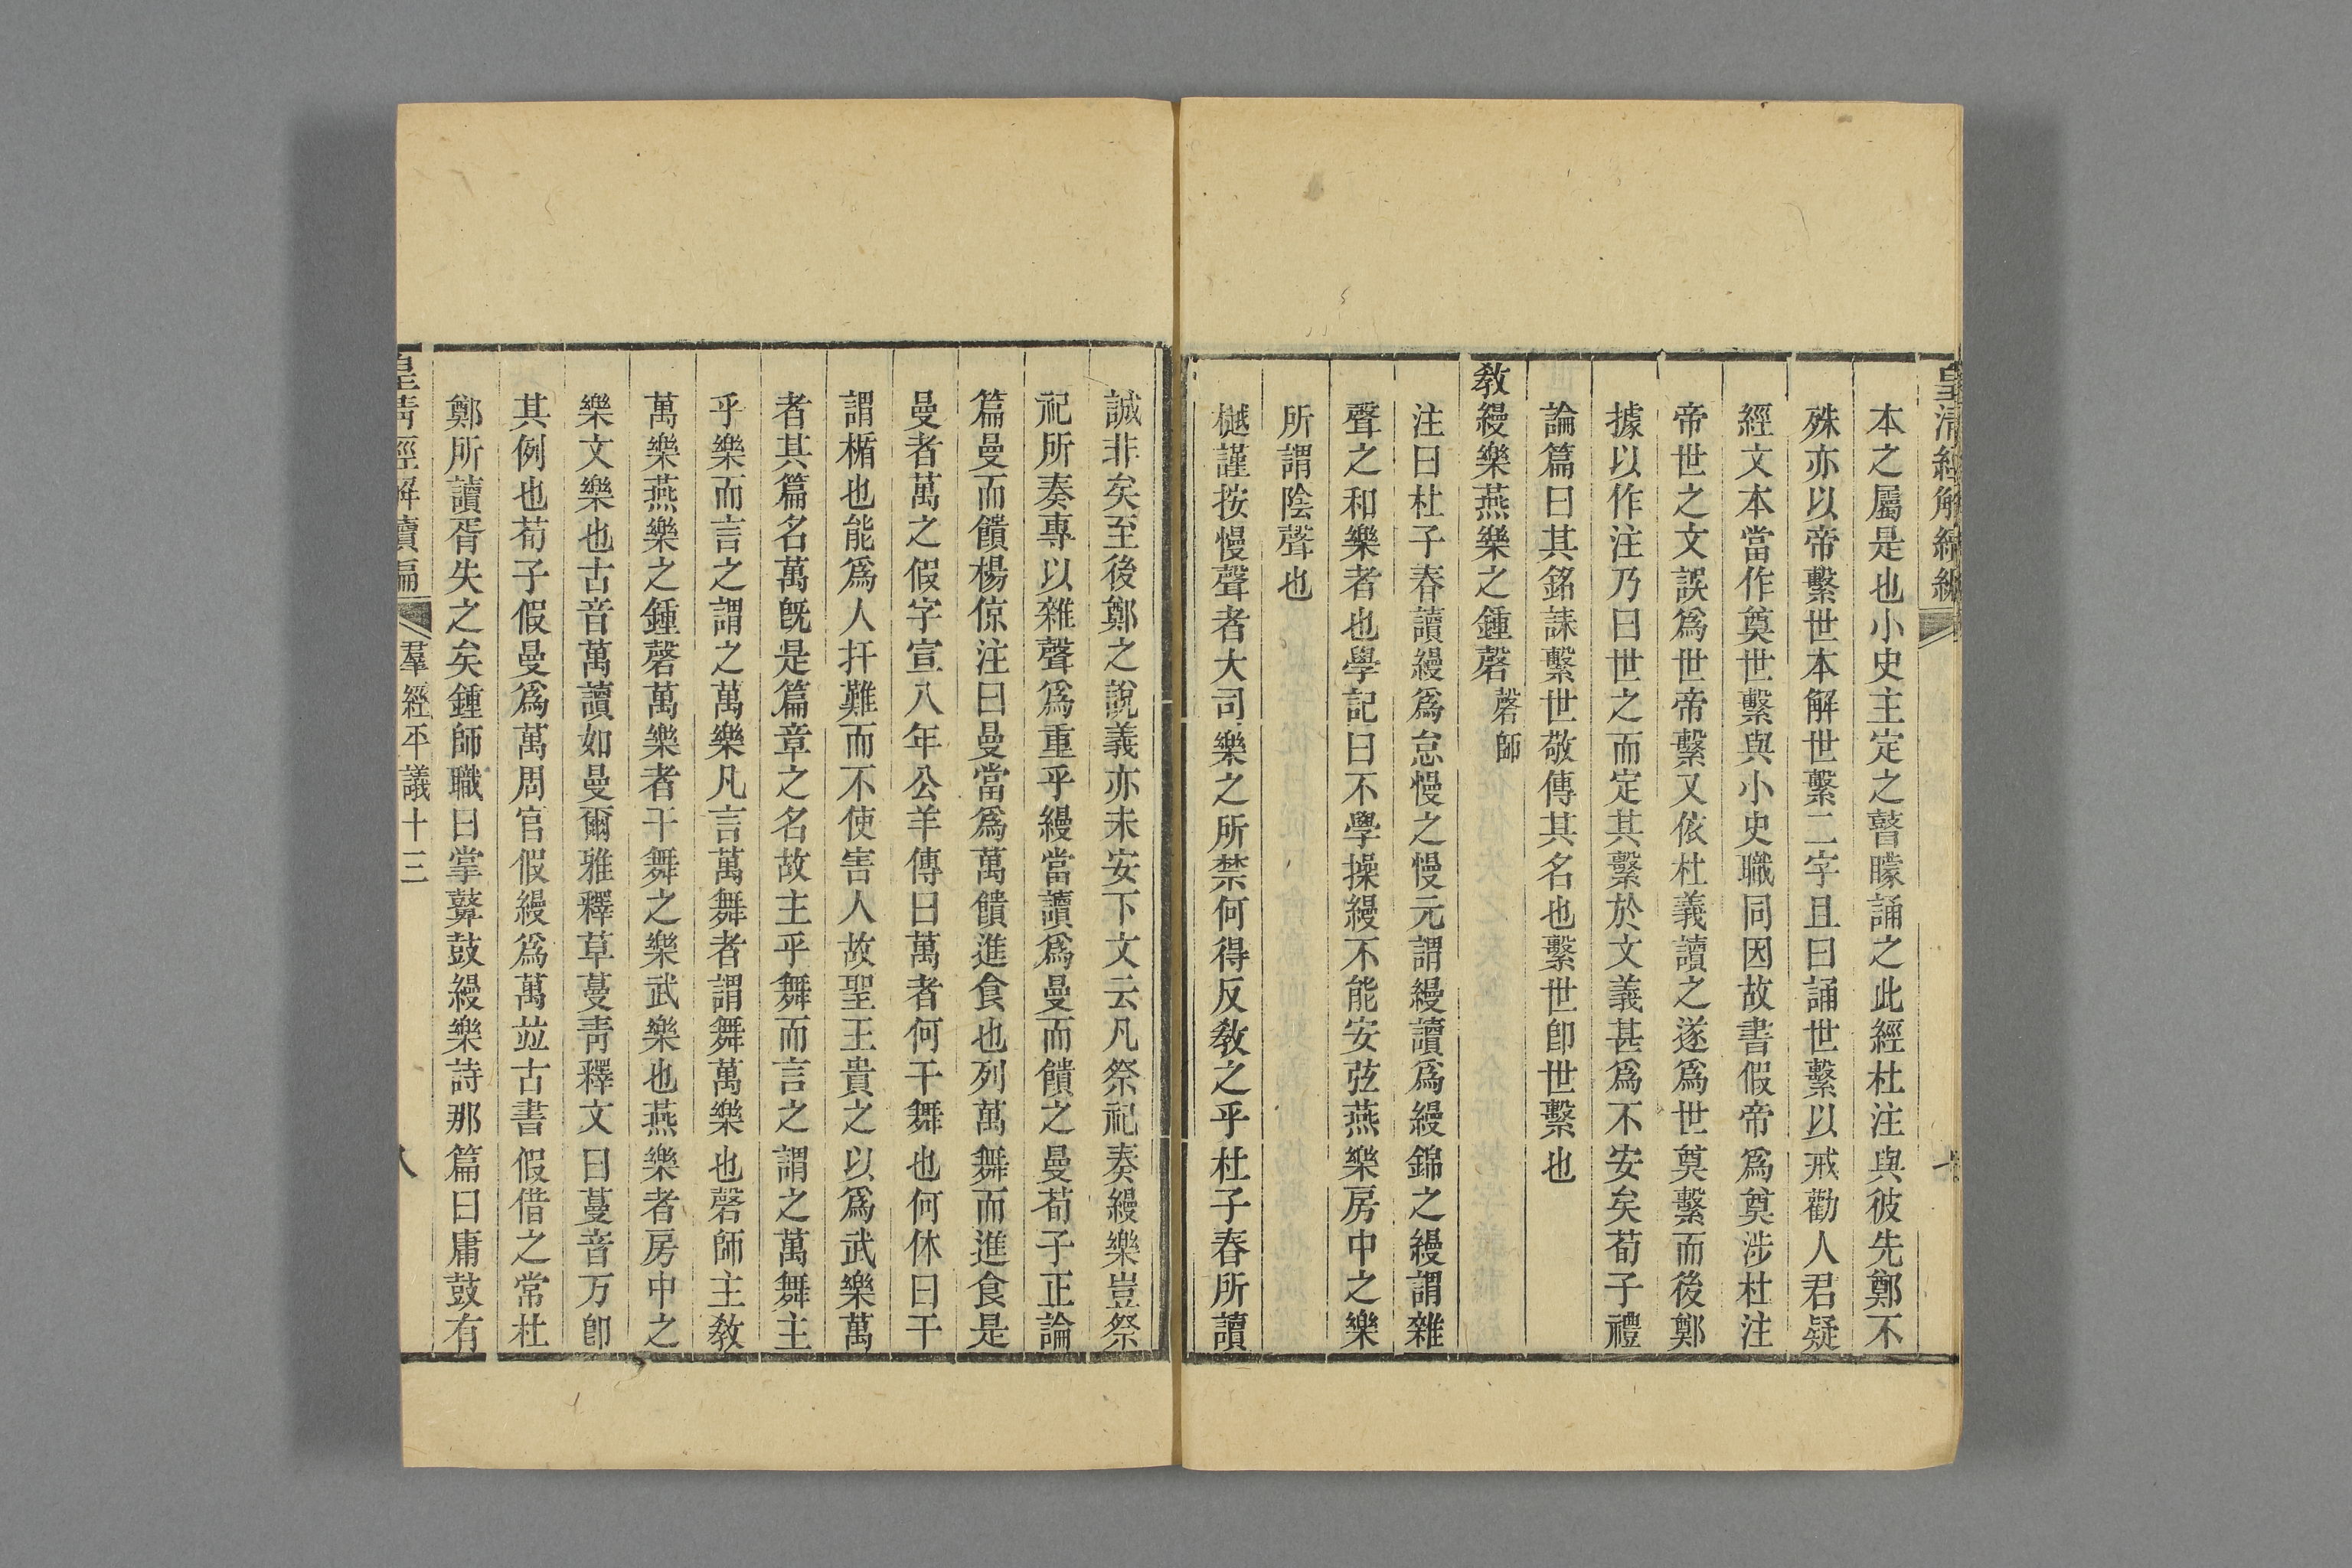 皇清經解續編
本之屬是也小史主定之瞽矇誦之此經杜注與彼先鄭不
殊亦以帝繫世本解世繫二字且曰誦世繫以戒勸人君疑
經文本當作奠世繫與小史職同因故書假帝爲奠涉杜注
帝世之文誤爲世帝繫又依杜義讀之遂爲世奠繫而後鄭
據以作注乃曰世之而定其繫於文義甚爲不安矣荀子禮
論篇曰其銘誄繫世敬傳其名也繫世卽世繫也
教縵樂燕樂之鍾磬磬師
注曰杜子春讀縵爲怠慢之慢元謂縵讀爲縵錦之縵謂雜
聲之和樂者也學記曰不學操縵不能安弦燕樂房中之樂
所謂陰聲也
樾謹按慢聲者大司樂之所禁何得反敎之乎杜子春所讀
誠非矣至後鄭之說義亦未安下文云凡祭祀奏縵樂豈祭
祀所奏專以雜聲爲重乎縵當讀爲曼而饋之曼荀子正論
篇曼而饋楊倞注曰曼當爲萬饋進食也列萬舞而進食是
曼者萬之假字宣八年公羊傳曰萬者何干舞也何休曰干
謂楯也能爲人扞難而不使害人故聖王貴之以爲武樂萬
者其篇名萬旣是篇章之名故主乎舞而言之謂之萬舞主
乎樂而言之謂之萬樂凡言萬舞者謂舞萬樂也磬師主敎
萬樂燕樂之鍾磬萬樂者干舞之樂武樂也燕樂者房中之
樂文樂也古音萬讀如曼爾雅釋草蔓靑釋文曰蔓音万卽
其例也荀子假曼爲萬周官假縵爲萬竝古書假借之常杜
鄭所讀胥失之矣鍾師職曰掌鼙鼓縵樂詩那篇曰庸鼓有
皇清經解續編 羣經平議十三 八